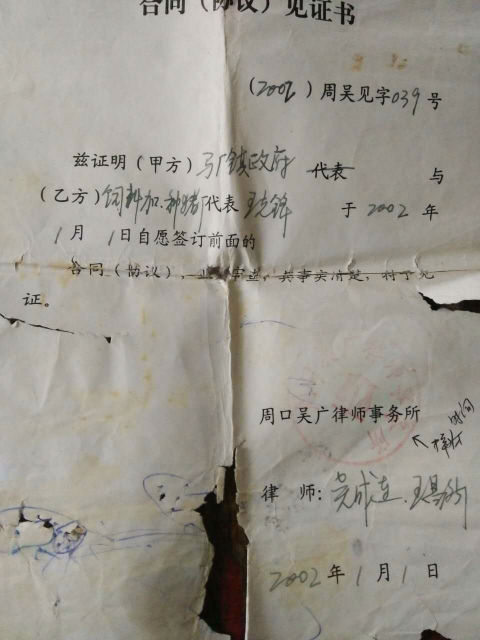 合同（协议）见证书
（2002）周吴见字039号
兹证明（甲方）马厂镇政府 代表 与
（乙方）饲料加.种猪厂代表 王克锋 于2002年
1月 1日自愿签订前面的
合同（协议），其事实清楚，特予见
证。
周口吴广律师事务所
时间
律 师：
2002年1月1日